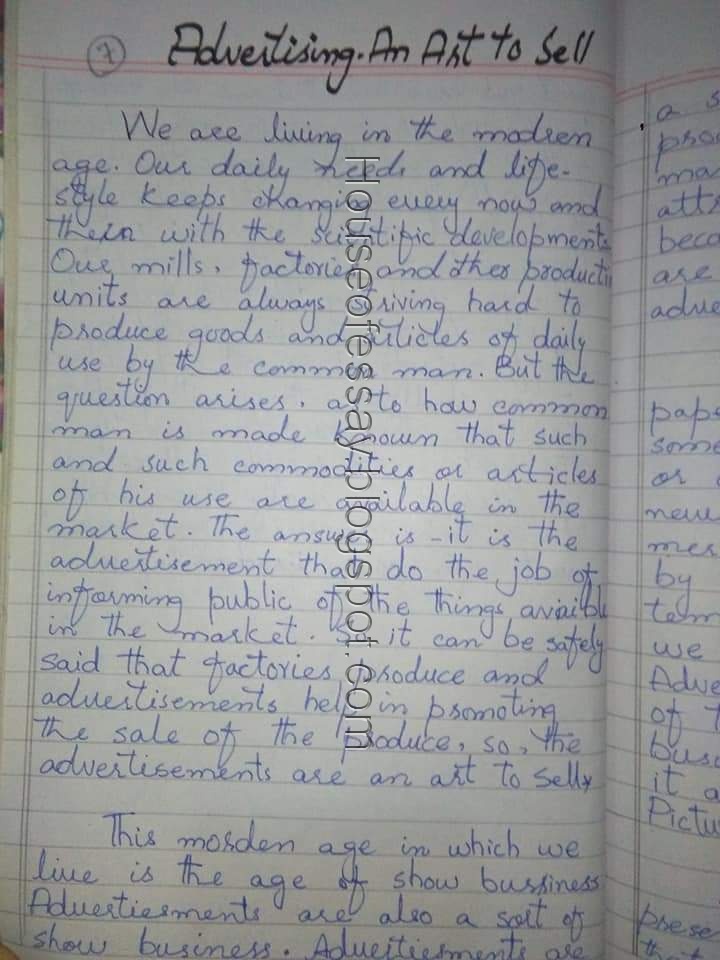 7 Advertising. An Art to Sell
We are living in the modren
age. Our daily needs and life-
style keeps changing every now and
then with the scientific developments
Our mills, factories and other producti
units are always striving hard to
produce goods and articles of daily
use by the common man. But the
question arises, as to how common
man is made known that such
and such commodities or articles
of his use are available in the
market. The answer is - it is the
advertisement that do the job of
informing public of the things avaibl
in the market. So it can be safely
said that factories produce and
advertisements help in promoting
the sale of the produce, so, the
advertisements are an art to sell
This morden age in which we
live is the age of show bussiness
Advertiesments are also a sort of
show business. Advertiesments are
Houseofessay.blogspot.com
a s
pro
ma
att
beco
are
adve
pap
some
or
new
mes
by
we
Adve
of
busi
it a
Pictu
prese
that